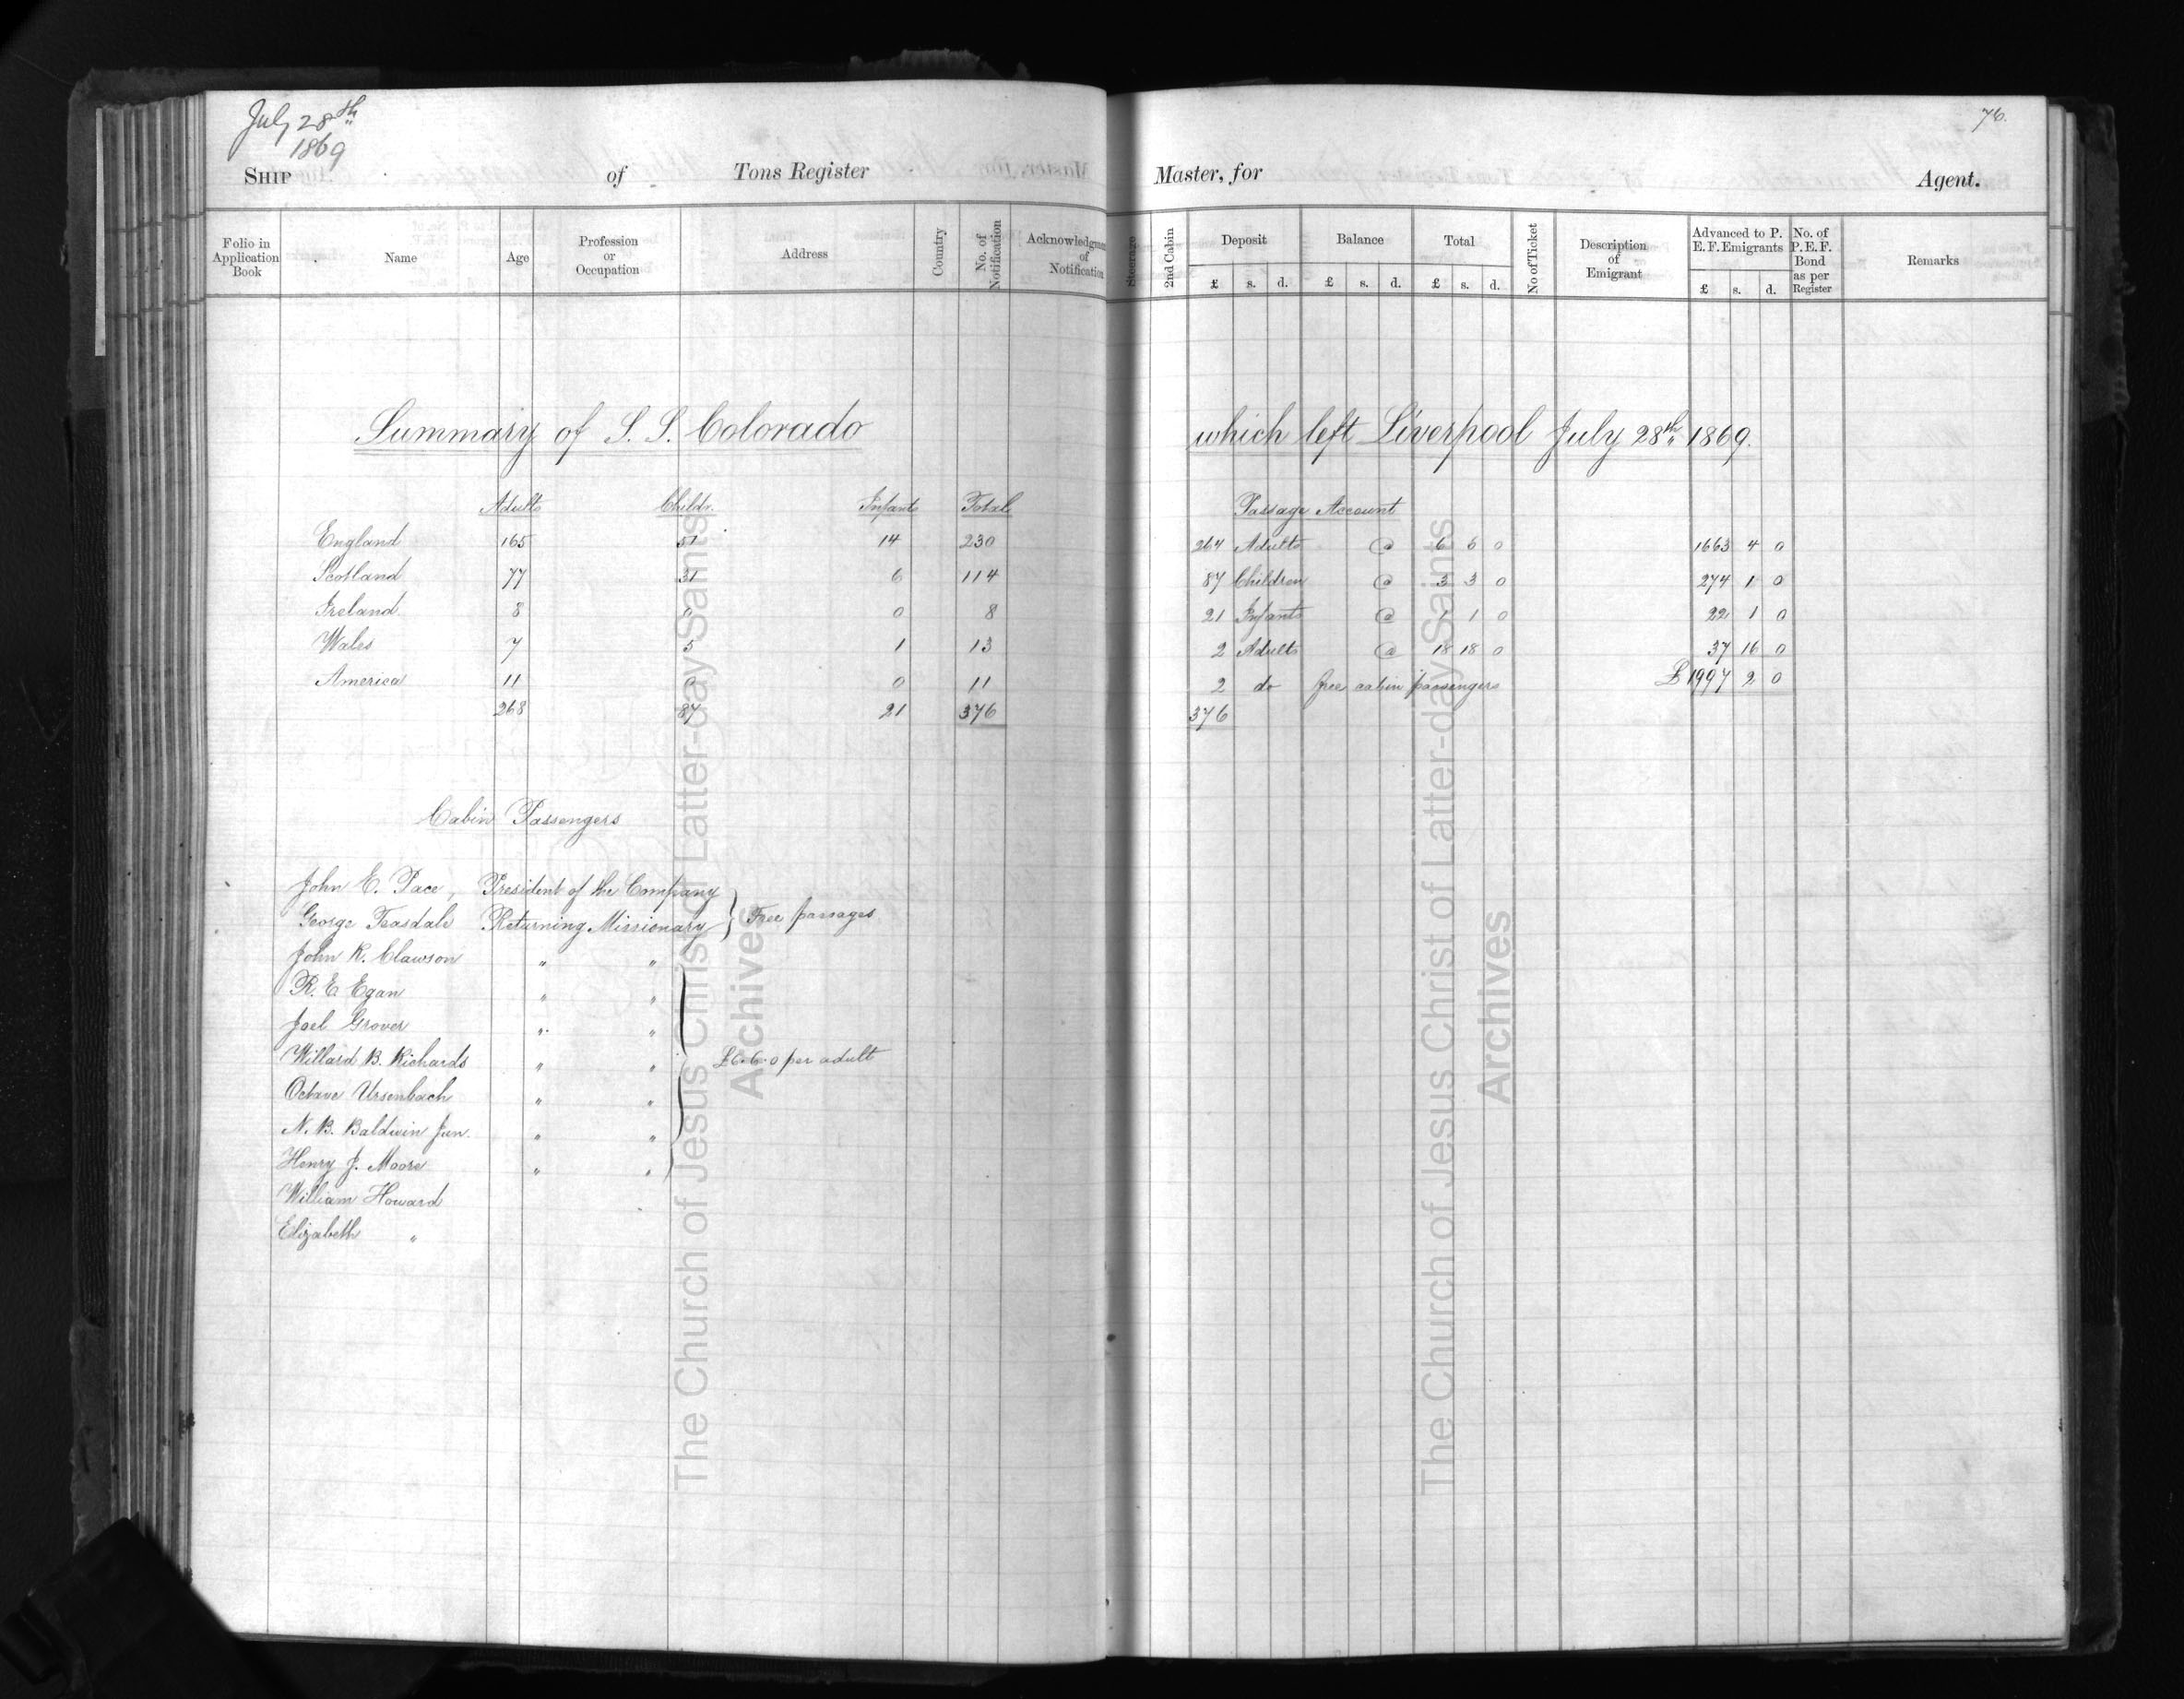 July 28th
1869
76.
SHIP of Tons Register Master, for Agent.
Folio in Application Book Name Age Profession or Occupation Address Country No. of Notification Acknowledgment of Notification Steerage 2nd Cabin Deposit £ s. d. Balance £ s. d. Total £ s. d. No of Ticket Description of Emigrant Advanced to P. E. F. Emigrants £ s. d. No. of P. E. F. Bond as per Register Remarks
Summary of S. S. Colorado which left Liverpool July 28th 1869.
Adults Childn. Infants Total
England 165 51 14 230
Scotland 77 31 6 114
Ireland 8 0 0 8
Wales 7 5 1 13
America 11 0 0 11
268 87 21 376
Passage Account
264 Adults @ 6 6 0 1663 4 0
87 Children @ 3 3 0 274 1 0
21 Infants @ 1 1 0 22 1 0
2 Adults @ 18 18 0 37 16 0
2 do free cabin passengers £1997 2 0
376
Cabin Passengers
John E. Pace, President of the Company
George Teasdale Returning Missionary } Free passages
John R. Clawson " "
R. E. Egan " "
Joel Grover " "
Willard B. Richards " " £6.6.0 per adult
Octave Ursenbach " "
N. B. Baldwin Jun. " "
Henry J. Moore " "
William Howard
Elizabeth "
The Church of Jesus Christ of Latter-day Saints
Archives
The Church of Jesus Christ of Latter-day Saints
Archives